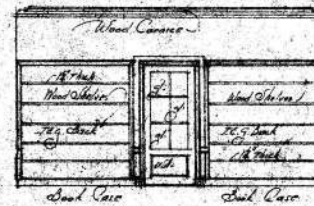 Wood Cornice
1⅛" Thick
Wood Shelves
T.&G. Back
Wood Shelves
T.&G. Back
1⅛" Thick
gl.
gl.
gl.
Book Case
Book Case